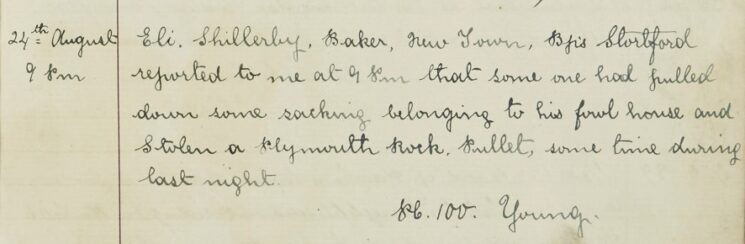 24th August
9 Pm
Eli. Shillerby, Baker, New Town, Bp's Stortford
reported to me at 9 Pm that some one had pulled
down some sacking belonging to his fowl house and
Stolen a Plymouth Rock. Pullet, some time during
last night.
P.C. 100. Young.